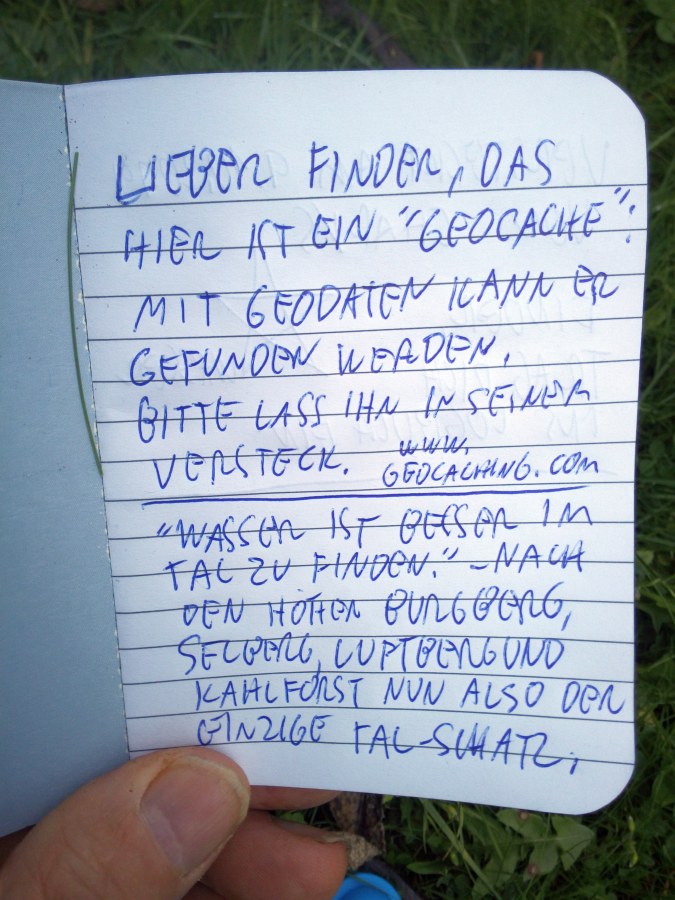 LIEBER FINDER, DAS
HIER IST EIN "GEOCACHE":
MIT GEODATEN KANN ER
GEFUNDEN WERDEN.
BITTE LASS IHN IN SEINEM
VERSTECK. WWW.
GEOCACHING.COM
"WASSER IST BESSER IM
TAL ZU FINDEN." - NACH
DEN HÖHEN BURGBERG,
SELBERG, LUFTBERG UND
KAHLFORST NUN ALSO DER
EINZIGE TAL-SCHATZ,